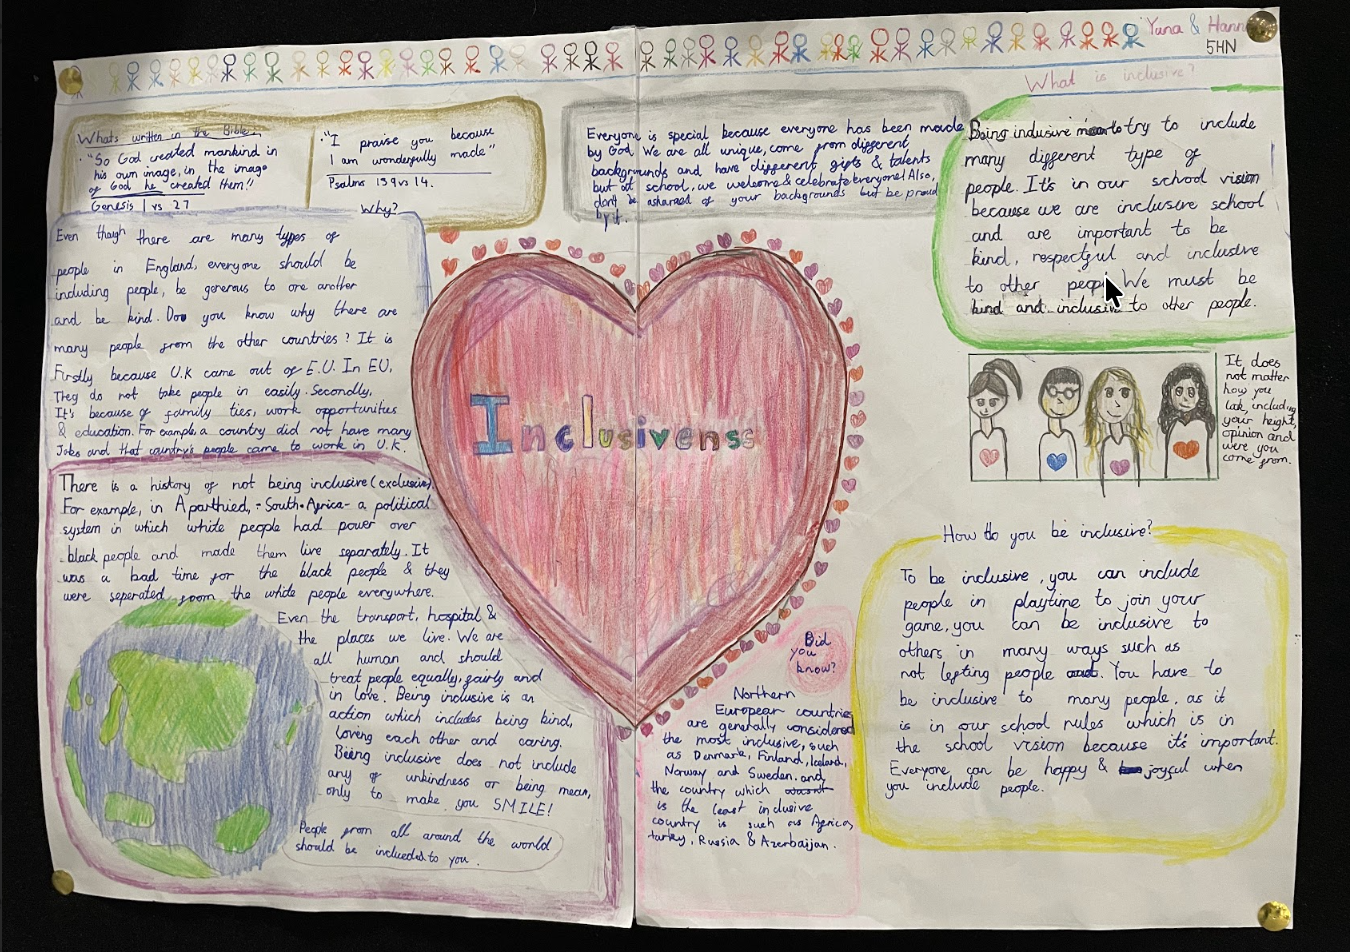 Yuna & Hann
5HN
What's written in the Bible.
• "So God created mankind in
his own image, in the image
of God he created them"
Genesis 1 vs 27
• "I praise you because
I am wonderfully made"
Psalms 139 vs 14.
Everyone is special because everyone has been made
by God. We are all unique, come from different
backgrounds and have different gifts & talents
but at school, we welcome & celebrate everyone! Also,
don't be ashamed of your backgrounds but be proud
by it.
What is inclusive?
Being inclusive means to try to include
many different type of
people. It's in our school vision
because we are inclusive school
and are important to be
kind, respectful and inclusive
to other peop We must be
kind and inclusive to other people.
Why?
Even though there are many types of
people in England, everyone should be
including people, be generous to one another
and be kind. Do you know why there are
many people from the other countries? It is
Firstly because U.K came out of E.U. In EU,
They do not take people in easily. Secondly,
It's because of family ties, work opportunities
& education. For example, a country did not have many
Jobs and that country's people came to work in U.K.
Inclusivenss
It does
not matter
how you
look, including
your height,
opinion and
were you
come from.
There is a history of not being inclusive (exclusive)
For example, in Aparthied, - South-Africa - a political
system in which white people had power over
black people and made them live separately. It
was a bad time for the black people & they
were seperated from the white people everywhere.
Even the transport, hospital &
the places we live. We are
all human and should
treat people equally, fairly and
in love. Being inclusive is an
action which includes being kind,
loving each other and caring.
Being inclusive does not include
any of unkindness or being mean,
only to make you SMILE!
People from all around the world
should be inclueded to you.
Did
you
know?
Northern
European countries
are generally considered
the most inclusive, such
as Denmark, Finland, Iceland,
Norway and Sweden. and
the country which wasnt
is the least inclusive
country is such as Africa,
turkey, Russia & Azerbaijan.
How do you be inclusive?
To be inclusive, you can include
people in playtime to join your
game, you can be inclusive to
others in many ways such as
not lefting people out. You have to
be inclusive to many people, as it
is in our school rules which is in
the school vision because it's important.
Everyone can be happy & joyful when
you include people.